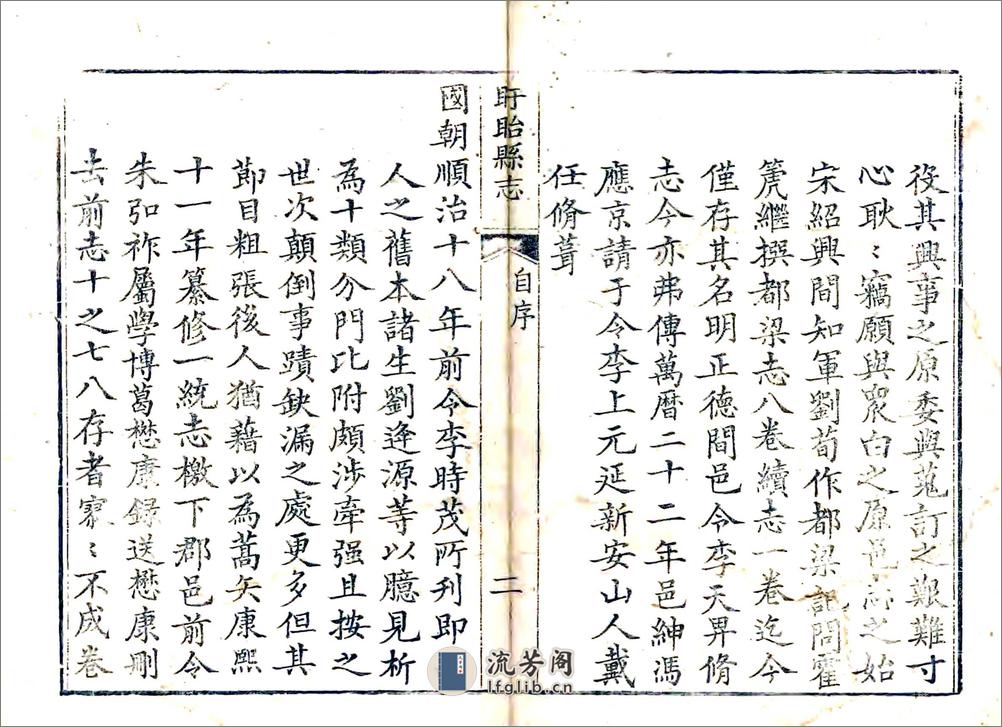 役其興事之原委與蒐訂之艱難寸
心耿〻竊願與衆白之原邑志之始
宋紹興間知軍劉荀作都梁記問霍
箎繼撰都梁志八卷續志一卷迄今
僅存其名明正德間邑令李天畀脩
志今亦弗傳萬曆二十二年邑紳馮
應京請于令李上元延新安山人戴
任脩葺
盱眙縣志
自序
二
國朝順治十八年前令李時茂所刊即
人之舊本諸生劉逢源等以臆見析
為十類分門比附頗涉牽强且按之
世次顛倒事蹟缺漏之處更多但其
節目粗張後人猶藉以為蒿矢康熙
十一年纂修一統志檄下郡邑前令
朱弘祚屬學博葛懋康錄送懋康刪
去前志十之七八存者寥〻不成卷
流芳阁
lfglib.cn